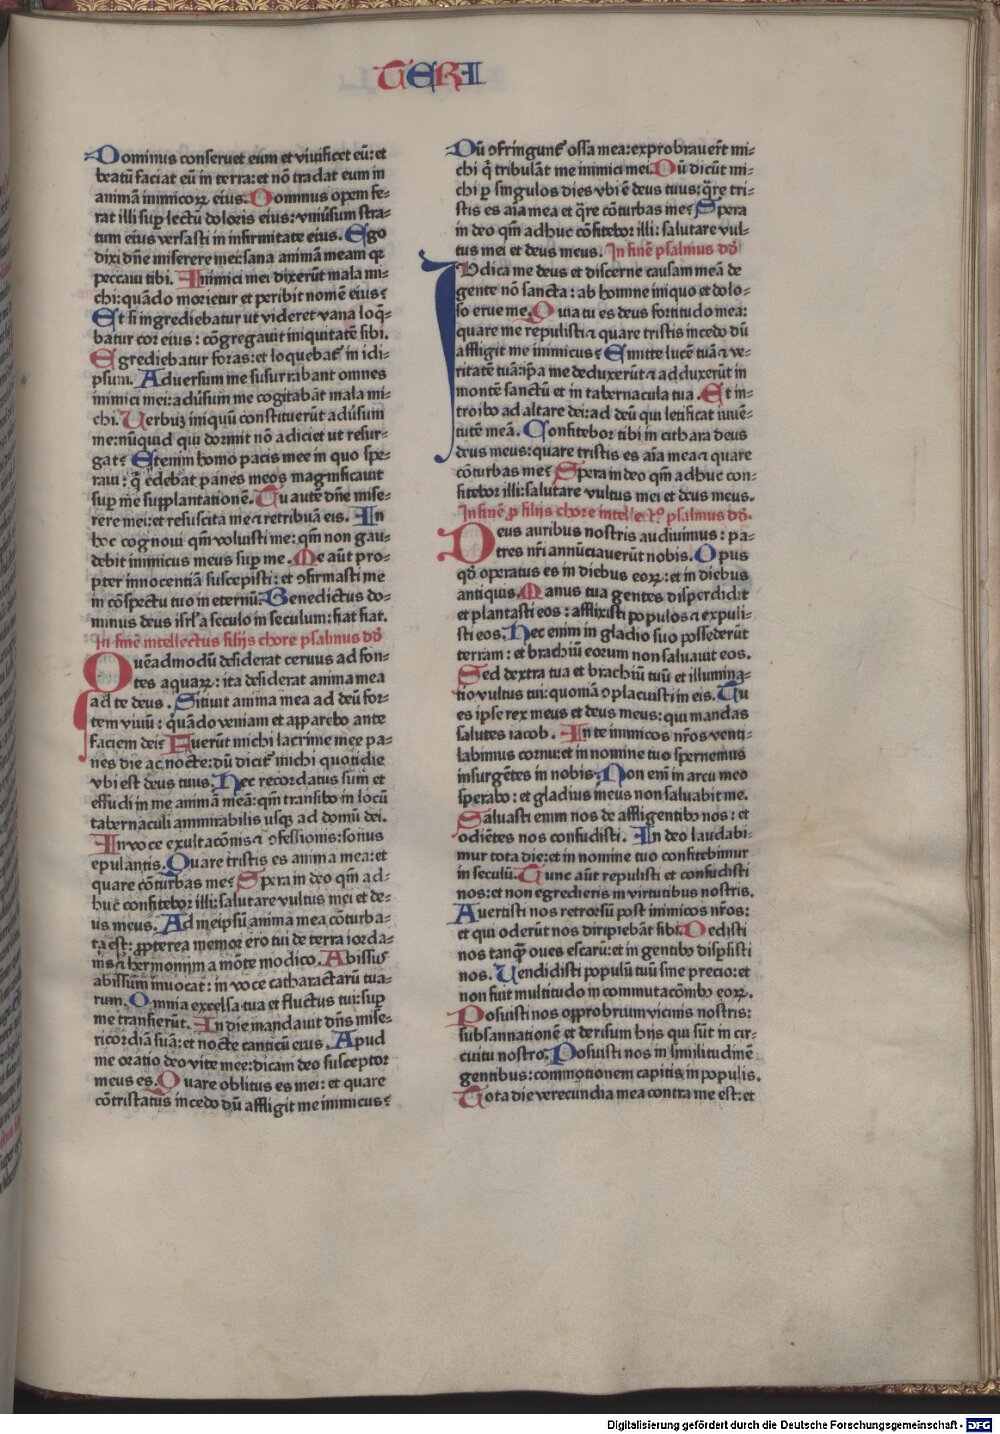 TERI
Dominus conseruet eum et viuificet eū: et
beatū faciat eū in terra: et nō tradat eum in
animā inimicoꝝ eius. Dominus opem fe-
rat illi suꝑ lectū doloris eius: vniūsum stra-
tum eius versasti in infirmitate eius. Ego
dixi dn̄e miserere mei: sana animā meam qꝛ
peccaui tibi. Inimici mei dixerūt mala mi-
chi: quādo morietur et peribit nomē eius?
Et si ingrediebatur ut videret vana loq̄-
batur cor eius: cōgregauit iniquitatē sibi.
Egrediebatur foras: et loquebat᷑ in idi-
psum. Aduersum me susurrabant omnes
inimici mei: adūsum me cogitabāt mala mi-
chi. Uerbuʒ iniquū constituerūt adūsum
me: nūquid qui dormit nō adiciet ut resur-
gat? Etenim homo pacis mee in quo spe-
raui: q̄ edebat panes meos magnificauit
suꝑ me supplantationē. Tu autē dn̄e mise-
rere mei: et resuscita me ⁊ retribuā eis. In
hoc cognoui qm̄ voluisti me: qm̄ non gau-
debit inimicus meus suꝑ me. Me aūt pro-
pter innocentiā suscepisti: et ꝯfirmasti me
in cōspectu tuo in eternū. Benedictus do-
minus deus isrl̄ a seculo in seculum: fiat fiat.
In finē intellectus filijs chore psalmus dd̄
Quēadmodū desiderat ceruus ad fon-
tes aquaꝝ: ita desiderat anima mea
ad te deus. Sitiuit anima mea ad deū for-
tem viuū: quādo veniam et apparebo ante
faciem dei? Fuerūt michi lacrime mee pa-
nes die ac nocte: dū dicit᷑ michi quotidie
vbi est deus tuus. Hec recordatus sum et
effudi in me animā meā: qm̄ transibo in locū
tabernaculi ammirabilis usqꝫ ad domū dei.
In voce exultacōnis ⁊ ꝯfessionis: sonus
epulantis. Quare tristis es anima mea: et
quare cōturbas me? Spera in deo qm̄ ad-
huc confitebor illi: salutare vultus mei et de-
us meus. Ad meipsū anima mea cōturba-
ta est: ꝓpterea memor ero tui de terra iorda-
nis ⁊ hermonijm a mōte modico. Abissus
abissum inuocat: in voce catharactarū tua-
rum. Omnia excelsa tua et fluctus tui: suꝑ
me transierūt. In die mandauit dn̄s mise-
ricordiā suā: et nocte canticū eius. Apud
me oratio deo vite mee: dicam deo susceptor
meus es. Quare oblitus es mei: et quare
cōtristatus incedo dū affligit me inimicus?
Dū ꝯfringunt᷑ ossa mea: exprobrauerūt mi-
chi q̄ tribulāt me inimici mei. Dū dicūt mi-
chi ꝑ singulos dies vbi ē deus tuus: q̄re tri-
stis es aīa mea et q̄re cōturbas me? Spera
in deo qm̄ adhuc cōfitebor illi: salutare vul-
tus mei et deus meus. In finē psalmus dd̄
Iudica me deus et discerne causam meā de
gente nō sancta: ab homine iniquo et dolo-
so erue me. Quia tu es deus fortitudo mea:
quare me repulisti ⁊ quare tristis incedo dū
affligit me inimicus? Emitte lucē tuā ⁊ ve-
ritatē tuā: ip̄a me deduxerūt ⁊ adduxerūt in
montē sanctū et in tabernacula tua. Et in-
troibo ad altare dei: ad deū qui letificat iuuē-
tutē meā. Confitebor tibi in cithara deus
deus meus: quare tristis es aīa mea ⁊ quare
cōturbas me? Spera in deo qm̄ adhuc con-
fitebor illi: salutare vultus mei et deus meus.
In finē ꝓ filijs chore intellectꝰ psalmus dd̄.
Deus auribus nostris audiuimus: pa-
tres nr̄i annūciauerūt nobis. Opus
qd̄ operatus es in diebus eoꝝ: et in diebus
antiquis. Manus tua gentes disperdidit
et plantasti eos: afflixisti populos ⁊ expuli-
sti eos. Nec enim in gladio suo possederūt
terram: et brachiū eorum non saluauit eos.
Sed dextra tua et brachiū tuū et illumina-
tio vultus tui: quoniā ꝯplacuisti in eis. Tu
es ipse rex meus et deus meus: qui mandas
salutes iacob. In te inimicos nr̄os venti-
labimus cornu: et in nomine tuo spernemus
insurgētes in nobis. Non enī in arcu meo
sperabo: et gladius meus non saluabit me.
Saluasti enim nos de affligentibꝫ nos: et
odiētes nos confudisti. In deo laudabi-
mur tota die: et in nomine tuo confitebimur
in seculū. Nunc aūt repulisti et confudisti
nos: et non egredieris in virtutibus nostris.
Auertisti nos retrorsū post inimicos nr̄os:
et qui oderūt nos diripiebāt sibi. Dedisti
nos tanqꝫ oues escarū: et in gentibꝫ disꝑsisti
nos. Uendidisti populū tuū sine precio: et
non fuit multitudo in commutacōnibꝫ eoꝝ.
Posuisti nos opprobrium vicinis nostris:
subsannationē et derisum hijs qui sūt in cir-
cuitu nostro. Posuisti nos in similitudinē
gentibus: commotionem capitis in populis.
Tota die verecundia mea contra me est: et
Digitalisierung gefördert durch die Deutsche Forschungsgemeinschaft - DFG